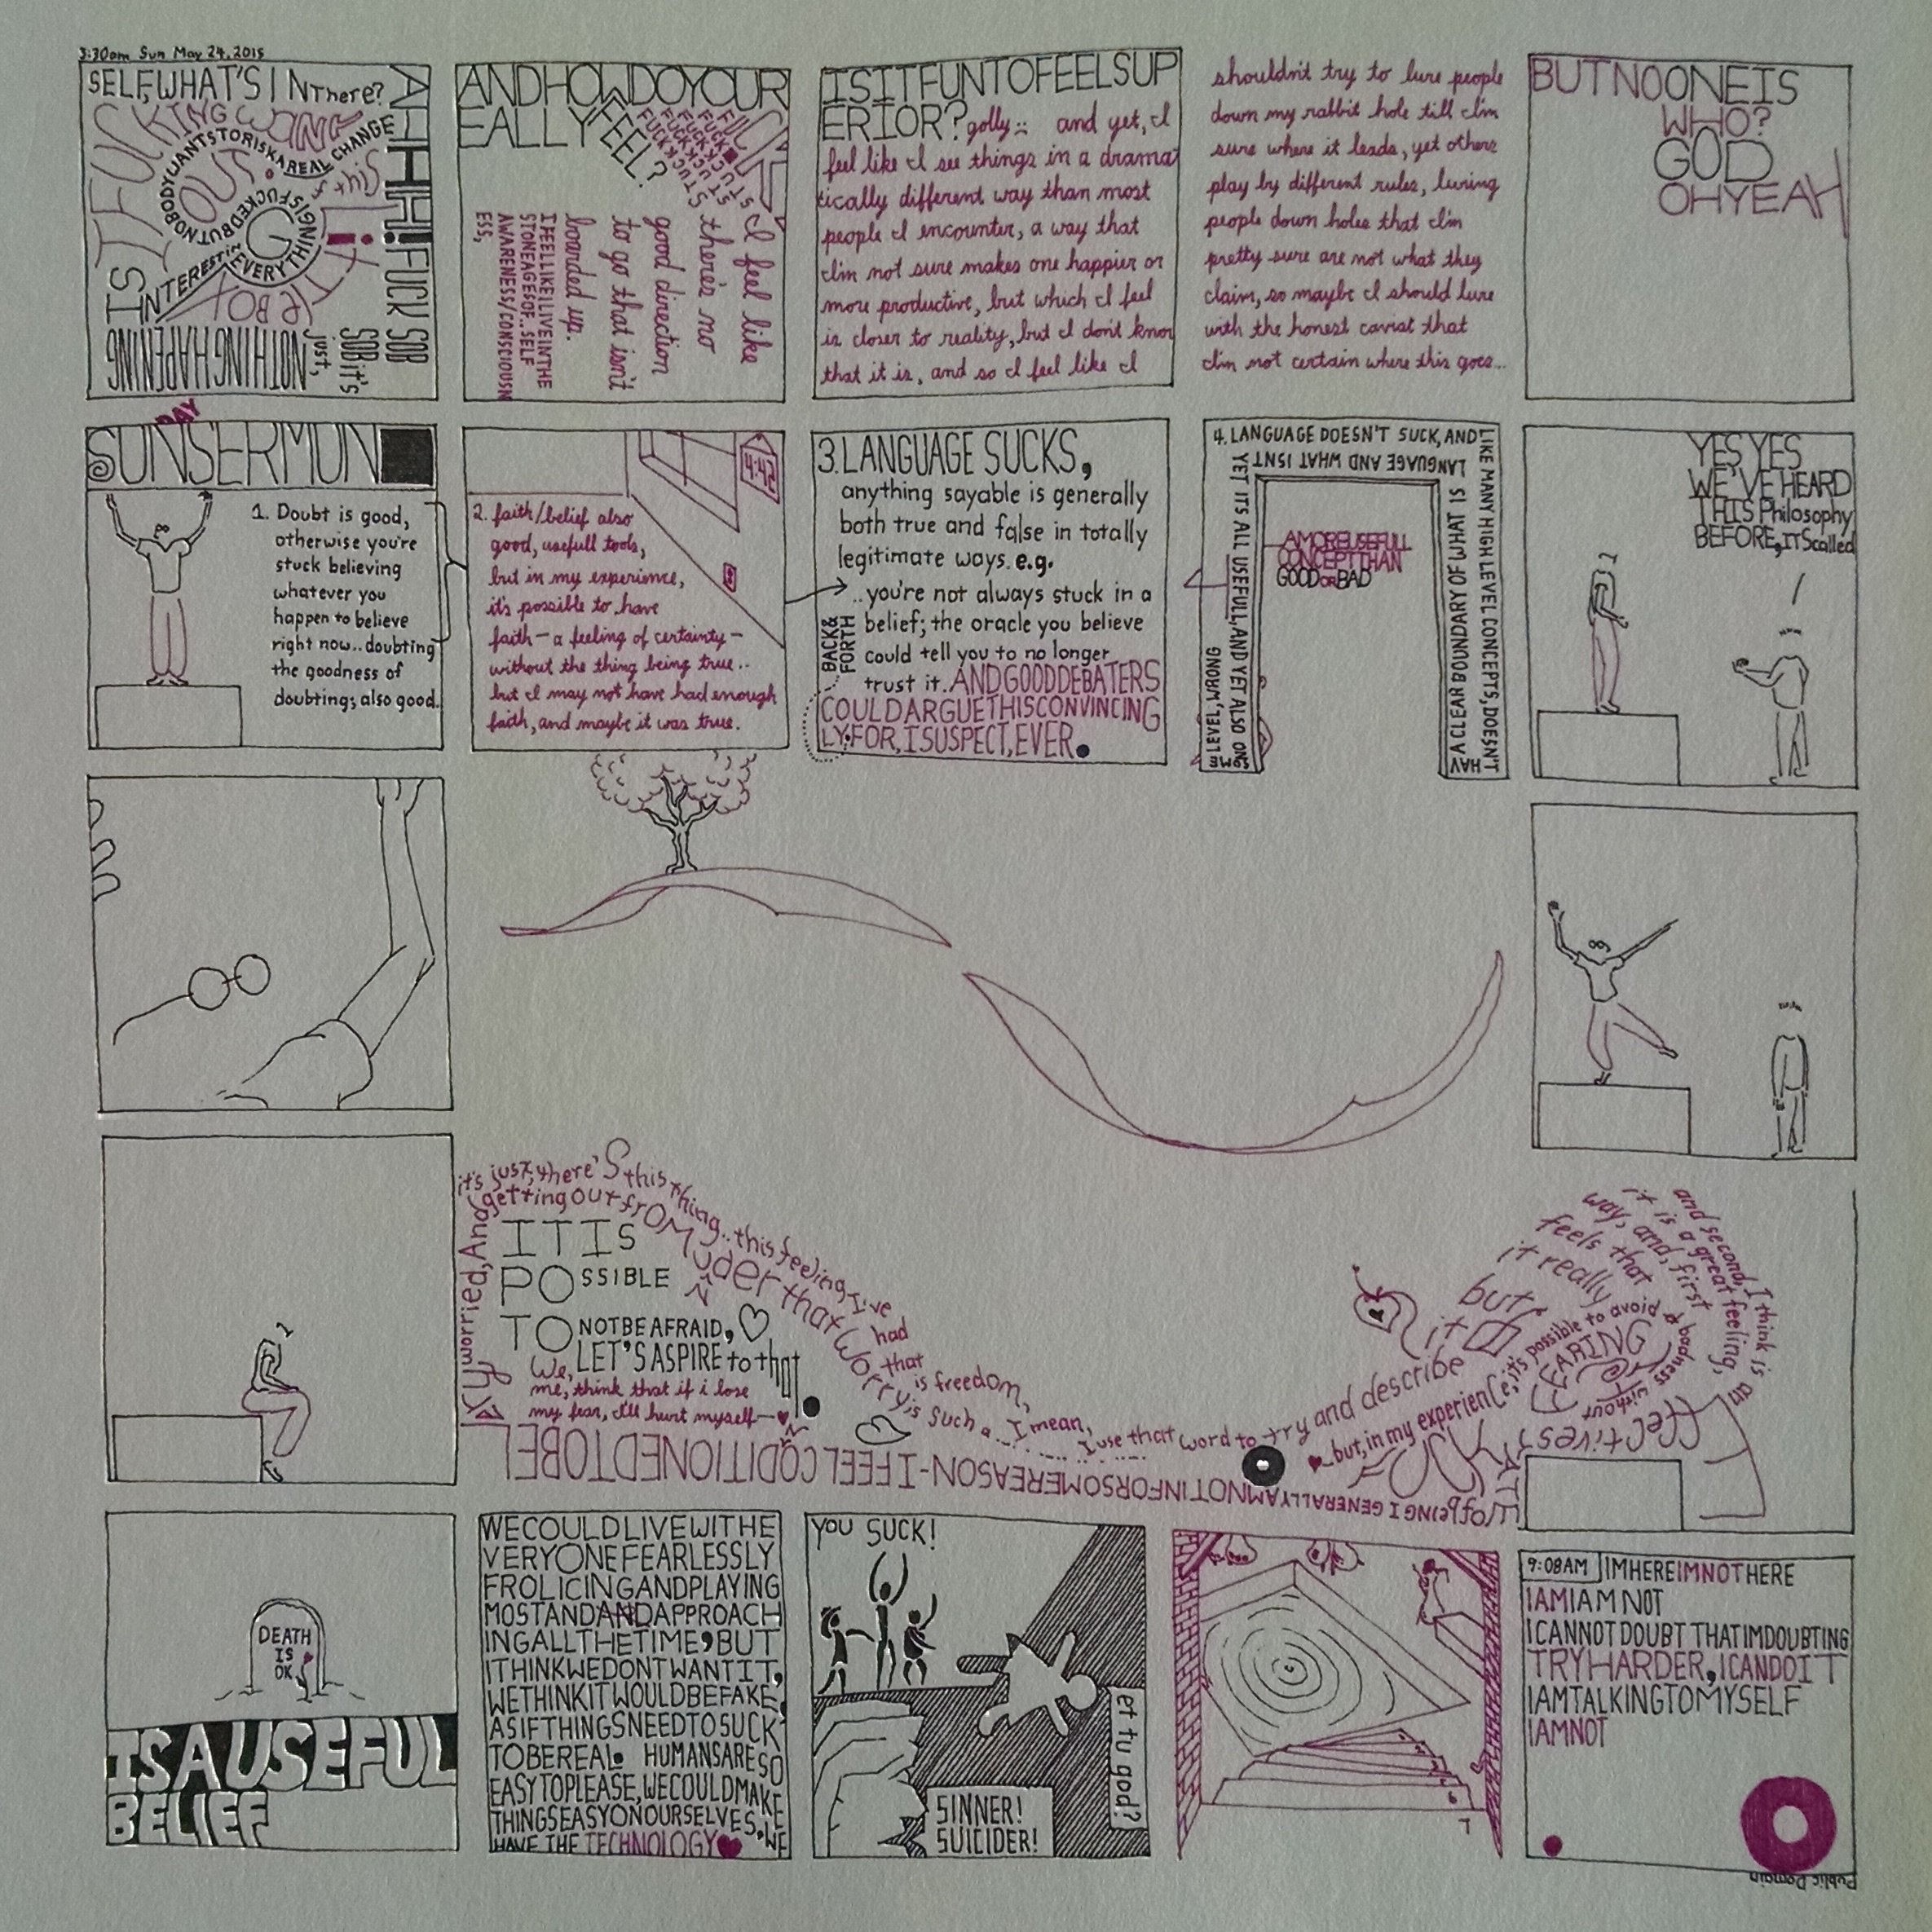 3:30am Sun May 24, 2015
SELF, WHAT'S IN There?
AHHH! FUCK SOB
SOB it's
just,
NOTHING HAPENING
IS
INTERESTIN
G
EVERYTHING IS FUCKED BUT NOBODY WANTS TO RISK A REAL CHANGE
FUCKING WANA
OUT.
ANDHOWDOYOUR
EALLY FEEL?
FUCK
FUCK
FUCK
FUCK
I feel like
there's no
good direction
to go that isn't
boarded up.
I FEEL LIKE I LIVE IN THE
STONEAGES OF...SELF
AWARENESS/CONSCIOUSN
ESS,
ISITFUNTOFEELSUP
ERIOR? golly :; and yet, I
feel like I see things in a drama
tically different way than most
people I encounter, a way that
I'm not sure makes one happier or
more productive, but which I feel
is closer to reality, but I don't know
that it is, and so I feel like I
shouldn't try to lure people
down my rabbit hole till I'm
sure where it leads, yet others
play by different rules, luring
people down holes that I'm
pretty sure are not what they
claim, so maybe I should lure
with the honest caviat that
I'm not certain where this goes...
BUTNOONEIS
WHO?
GOD
OHYEAH
DAY
SUNSERMON
1. Doubt is good,
otherwise you're
stuck believing
whatever you
happen to believe
right now.. doubting
the goodness of
doubting; also good.
4:42
2. faith/belief also
good, usefull tools,
but in my experience,
it's possible to have
faith — a feeling of certainty —
without the thing being true..
but I may not have had enough
faith, and maybe it was true.
3. LANGUAGE SUCKS,
anything sayable is generally
both true and false in totally
legitimate ways. e.g.
..you're not always stuck in a
belief; the oracle you believe
could tell you to no longer
trust it. ANDGOODDEBATERS
COULDARGUETHISCONVINCING
LY.FOR,ISUSPECT,EVER.
BACK&
FORTH
4. LANGUAGE DOESN'T SUCK, AND
LIKE MANY HIGH LEVEL CONCEPTS, DOESN'T
HAV A CLEAR BOUNDARY OF WHAT IS
LANGUAGE AND WHAT ISNT
YET ITS ALL USEFULL, AND YET ALSO ON
SOME LEVEL, WRONG
AMOREUSEFULL
CONCEPTTHAN
GOOD OR BAD
YES YES
WE'VE HEARD
THIS Philosophy
BEFORE, ITS called
it's just, there'S this thing.. this feeling I've had that is freedom,
I mean, I use that word to try and describe
it
but
it really
feels that
way, and, first
it is a great feeling,
and second, I think is an
effectives
t
WAy of being I GENERALLY AM NOT IN FOR SOME REASON - I FEEL CODITIONED TO BE
N
worried, And getting out from under that worry is such a
IT IS
POSSIBLE
TO NOT BE AFRAID, ♡
LET'S ASPIRE to that.
We,
me, think that if i lose
my fear, I'll hurt myself — ♥
♥ but, in my experience, it's possible to avoid badness without
FEARING
DEATH
IS
OK
ISAUSEFUL
BELIEF
WECOULDLIVEWITHE
VERYONEFEARLESSLY
FROLICINGANDPLAYING
MOSTANDANDAPPROACH
INGALLTHETIME, BUT
ITHINKWEDONTWANTIT,
WETHINKITWOULDBEFAKE,
ASIFTHINGSNEEDTOSUCK
TOBEREAL. HUMANSARESO
EASYTOPLEASE,WECOULDMAKE
THINGSEASYONOURSELVES. WE
HAVE THE TECHNOLOGY ♥
YOU SUCK!
et tu god?
SINNER!
SUICIDER!
9:08AM IMHEREIMNOTHERE
IAMIAM NOT
ICANNOT DOUBT THAT IMDOUBTING
TRYHARDER, ICANDOIT
IAMTALKINGTOMYSELF
IAMNOT
Public Domain